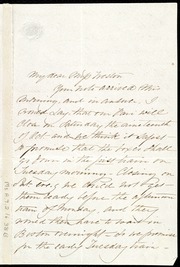 My dear Miss Weston
Your note arrived this
morning, and in answer, I
would say that our Fair will
close on Saturday the
of Oct. and we think it
to promise that the boxes shall
go down in the first train on
Tuesday morning. Closing on
Sat. eve., we could not get
them ready before the afternoon
train of Monday, and they
would then have to wait in
Boston overnight - so we promise
for the early Tuesday train -